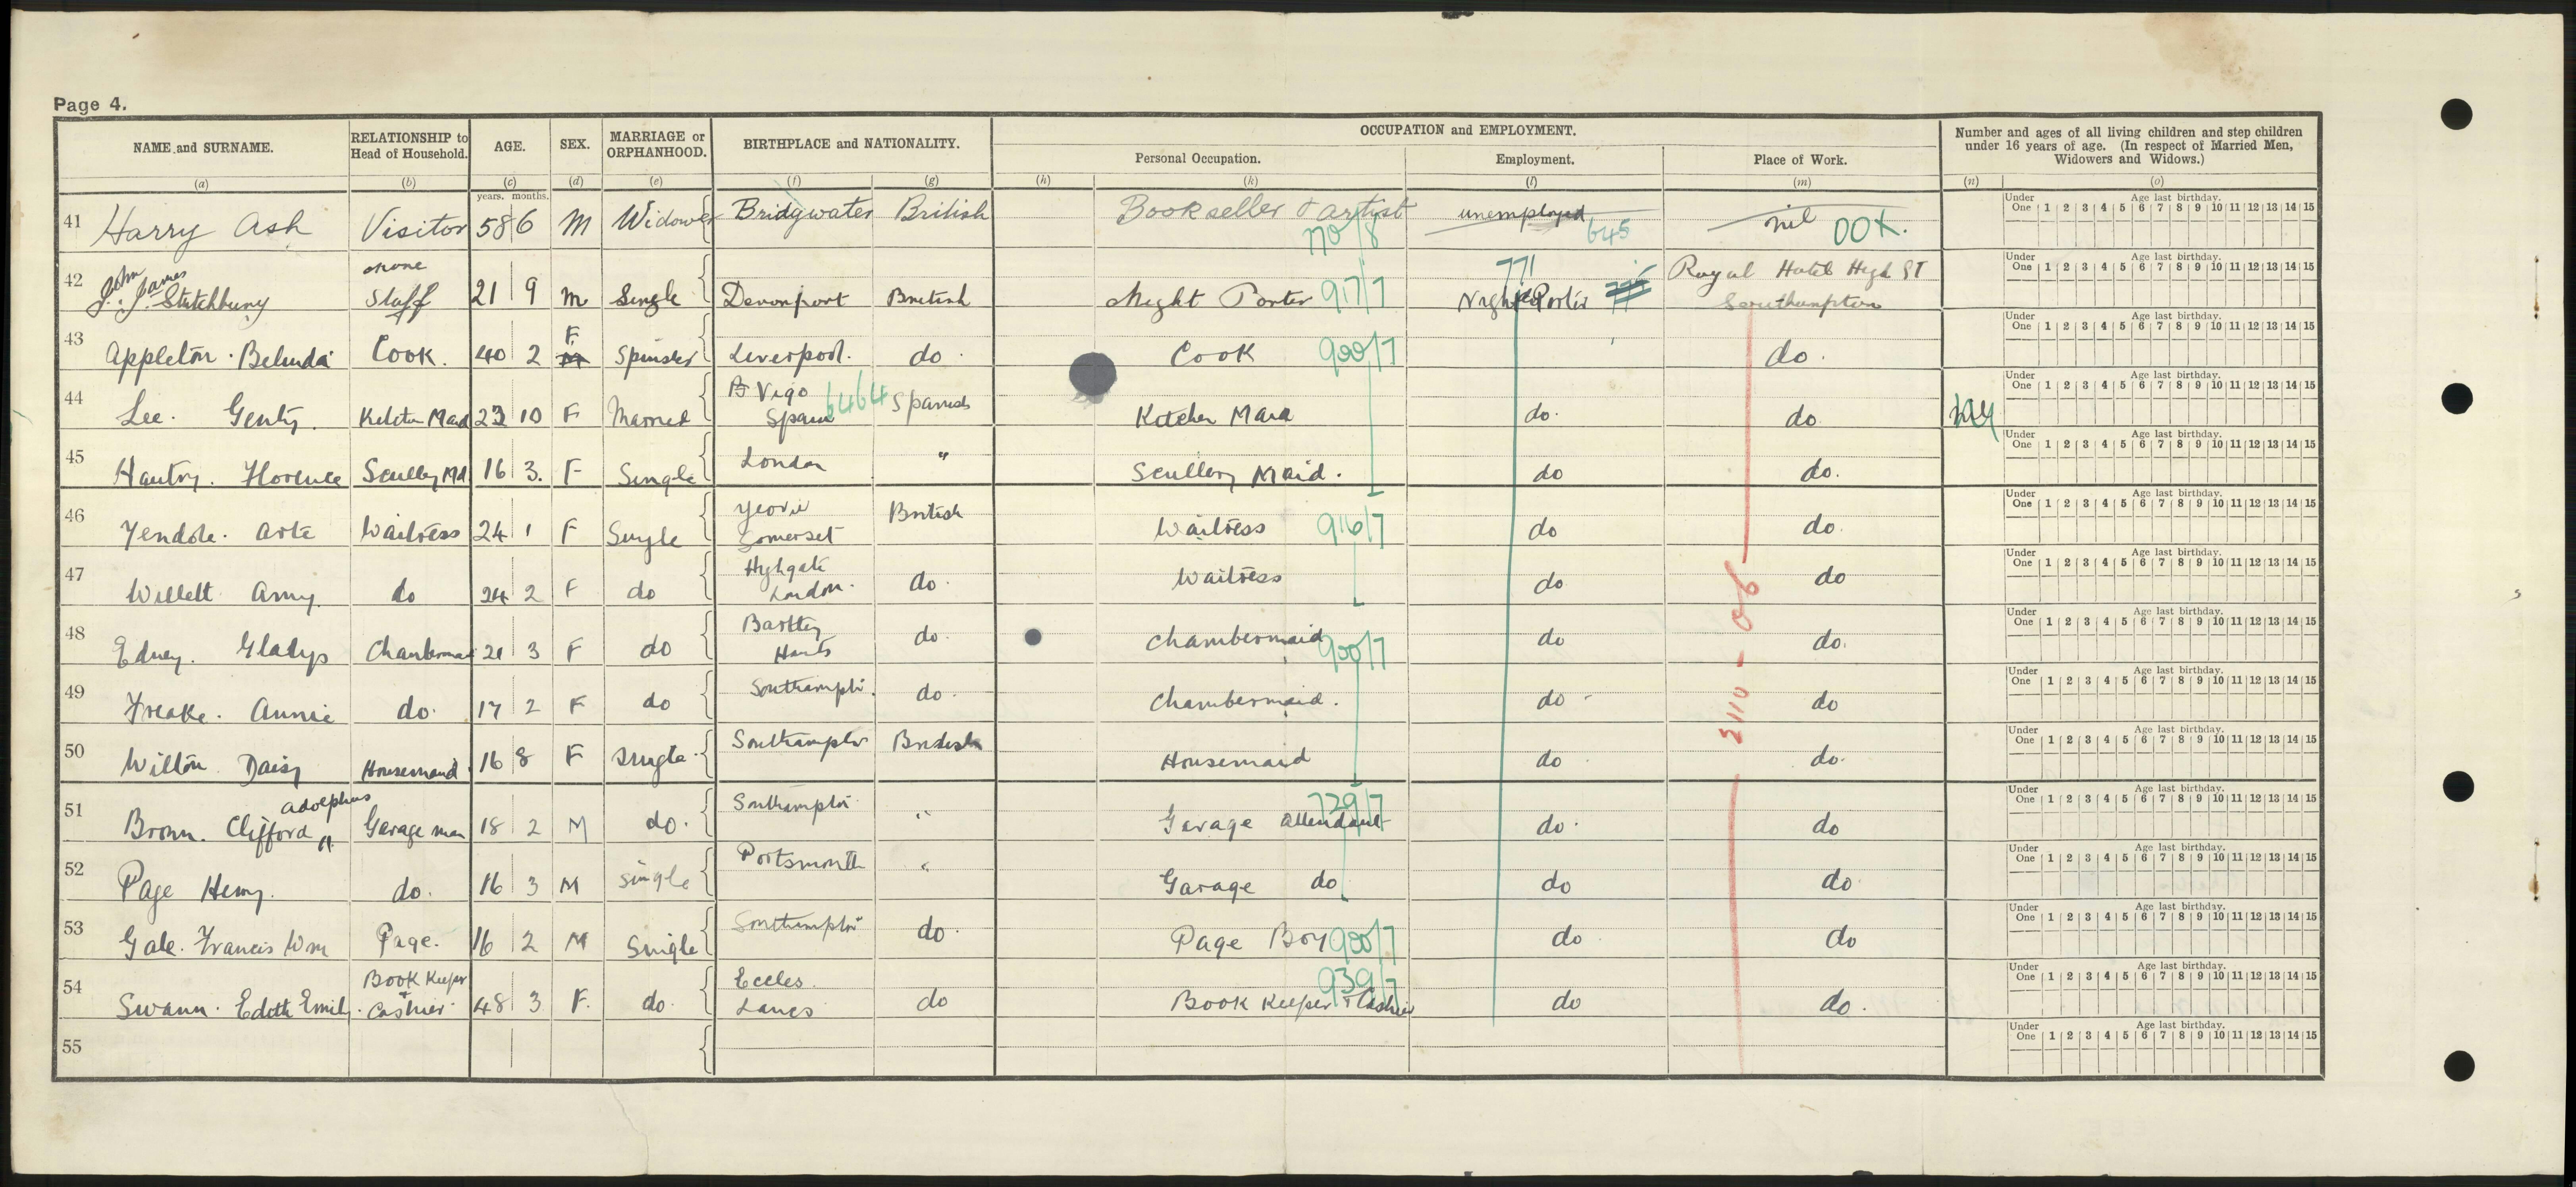 Page 4.
NAME and SURNAME. RELATIONSHIP to Head of Household. AGE. SEX. MARRIAGE or ORPHANHOOD. BIRTHPLACE and NATIONALITY. OCCUPATION and EMPLOYMENT. Number and ages of all living children and step children under 16 years of age. (In respect of Married Men, Widowers and Widows.)
Personal Occupation. Employment. Place of Work.
(a) (b) (c) (d) (e) (f) (g) (h) (k) (l) (m) (n) (o)
years. months.
Under One 1 2 3 4 5 6 7 8 9 10 11 12 13 14 15 Age last birthday.
41 Harry Ash Visitor 58 6 M Widower Bridgwater British Bookseller & artist 770/8 unemployed 645 nil 00X.
Under One 1 2 3 4 5 6 7 8 9 10 11 12 13 14 15 Age last birthday.
42 John James J. J. Stutchbury none Staff 21 9 M Single Devonport British Night Porter 917/7 771 Night Porter Royal Hotel High St Southampton
Under One 1 2 3 4 5 6 7 8 9 10 11 12 13 14 15 Age last birthday.
43 Appleton. Belinda Cook. 40 2 F M Spinster Liverpool. do. Cook 900/7 do.
Under One 1 2 3 4 5 6 7 8 9 10 11 12 13 14 15 Age last birthday.
44 Lee. 23 10 F Married Vigo Spain 6464 Spanish Kitchen Maid do. do.
Under One 1 2 3 4 5 6 7 8 9 10 11 12 13 14 15 Age last birthday.
45 Florence Scullery Md 16 3. F Single London " Scullery Maid. do do.
Under One 1 2 3 4 5 6 7 8 9 10 11 12 13 14 15 Age last birthday.
46 Yendole. Waitress 24 1 F Single Yeovil Somerset British Waitress 916/7 do do.
Under One 1 2 3 4 5 6 7 8 9 10 11 12 13 14 15 Age last birthday.
47 Willett Amy. do 24 2 F do Highgate London. do. Waitress do do
Under One 1 2 3 4 5 6 7 8 9 10 11 12 13 14 15 Age last birthday.
48 Edney. Gladys Chambermaid 21 3 F do Bartley Hants do. Chambermaid 900/7 do do.
Under One 1 2 3 4 5 6 7 8 9 10 11 12 13 14 15 Age last birthday.
49 Freake. Annie do. 17 2 F do Southampton. do. Chambermaid. do do
Under One 1 2 3 4 5 6 7 8 9 10 11 12 13 14 15 Age last birthday.
50 Wilton Daisy Housemaid 16 8 F Single Southampton British Housemaid do do.
Under One 1 2 3 4 5 6 7 8 9 10 11 12 13 14 15 Age last birthday.
51 Brown. Clifford Adolphus Garage man 18 2 M do. Southampton " Garage attendant 729/7 do. do
Under One 1 2 3 4 5 6 7 8 9 10 11 12 13 14 15 Age last birthday.
52 Page Henry. do. 16 3 M Single Portsmouth " Garage do do do
Under One 1 2 3 4 5 6 7 8 9 10 11 12 13 14 15 Age last birthday.
53 Gale. Francis Wm Page. 16 2 M Single Southampton do. Page Boy 900/7 do do
Under One 1 2 3 4 5 6 7 8 9 10 11 12 13 14 15 Age last birthday.
54 Swann. Edith Emily. Book Keeper & Cashier 48 3 F. do. Eccles. Lancs do Book Keeper & Cashier 939/7 do do.
Under One 1 2 3 4 5 6 7 8 9 10 11 12 13 14 15 Age last birthday.
55